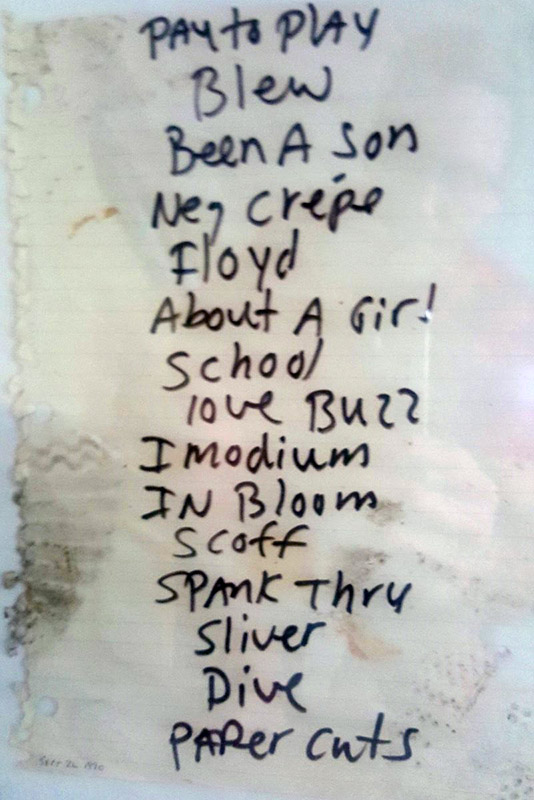 PAY to PLAY
Blew
Been A Son
Neg Crepe
Floyd
About A Girl
School
love Buzz
Imodium
IN Bloom
Scoff
SPANK Thru
Sliver
Dive
PAPer cuts
Sept 26 1990